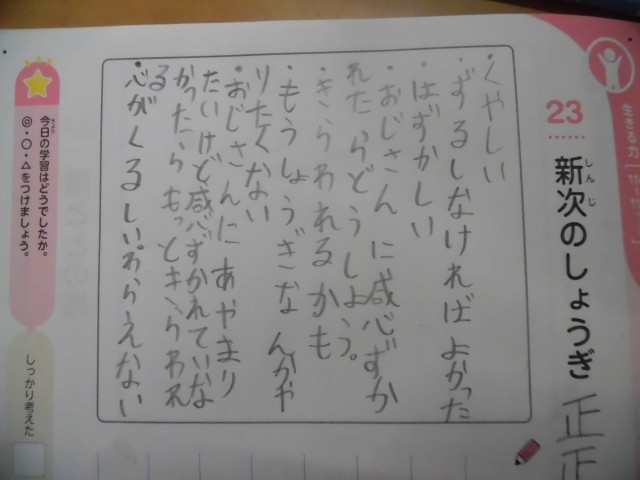 生きる力
23
新次のしょうぎ
しんじ
正正
・くやしい
・ずるしなければよかった
・はずかしい
・おじさんに感心ずか
れたらどうしよう。
・きらわれるかも
・もうしょうぎなんかや
りたくない
・おじさんにあやまり
たいけど感心ずかれていな
かったらもっときらわれ
る
・心がくるしい。わらえない
今日の学習はどうでしたか。
きょう
◎・○・△をつけましょう。
しっかり考えた